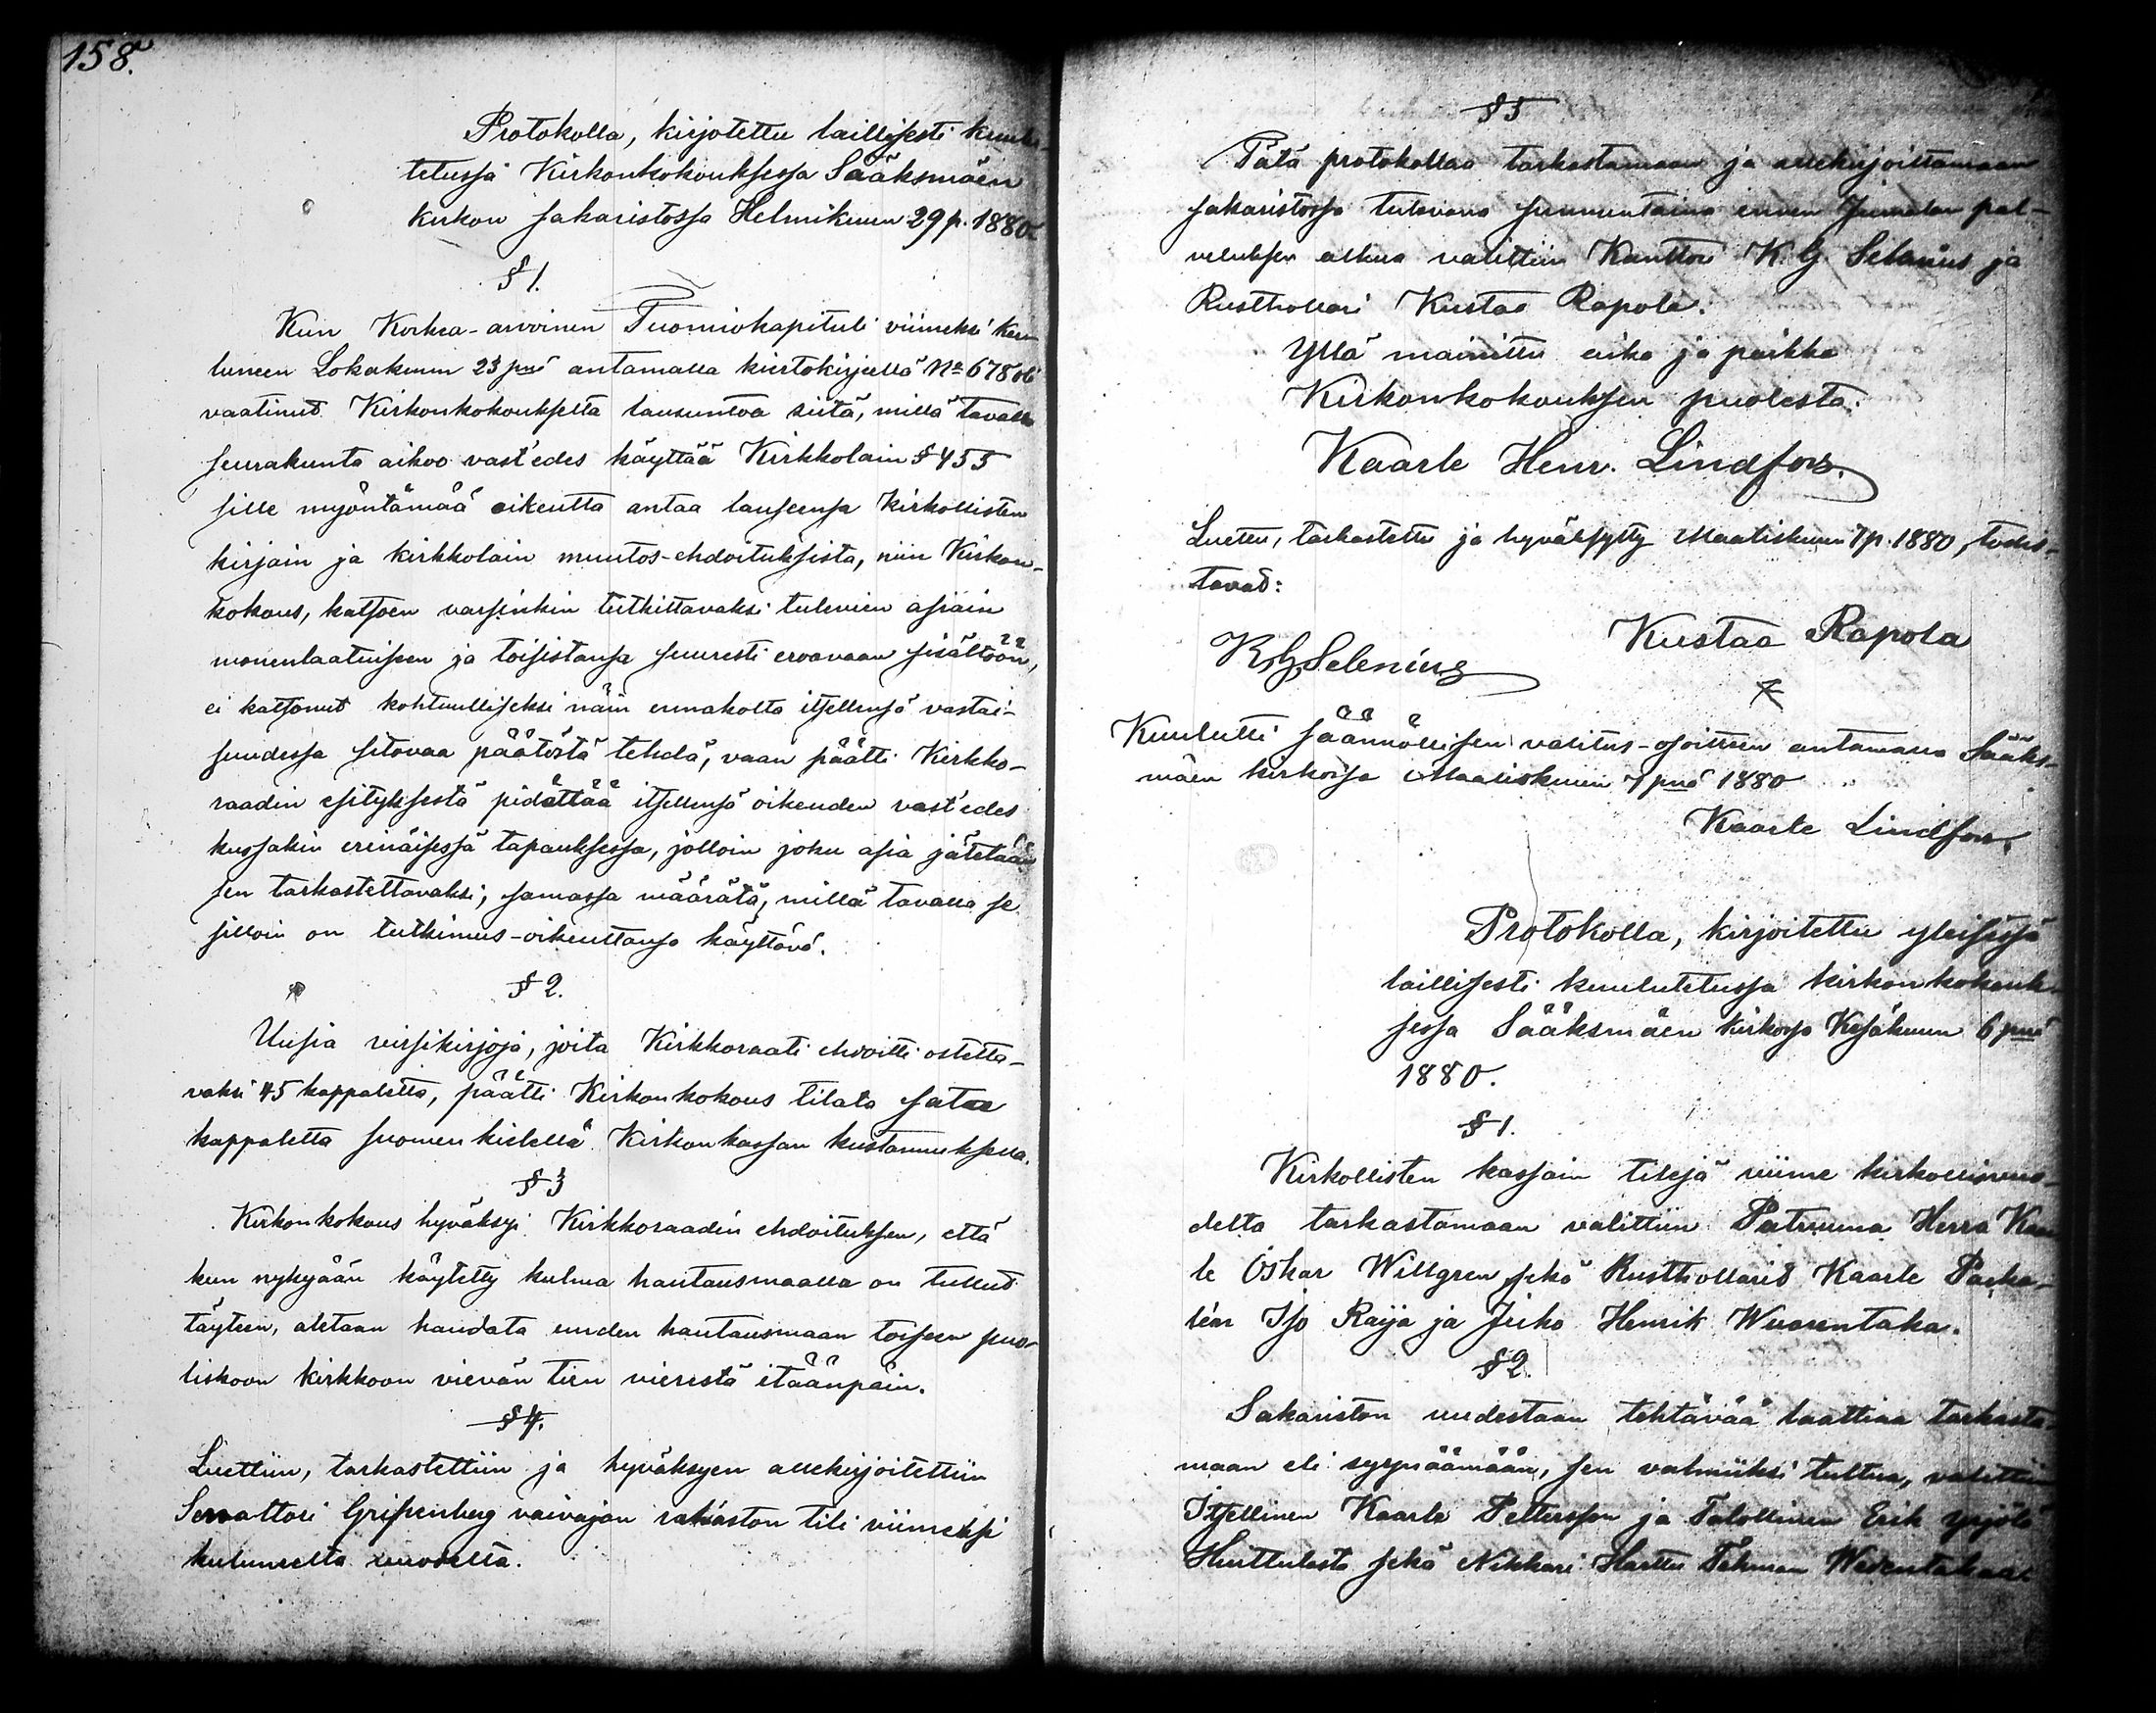 158.
Protokolla, kirjotettu laillisesti kuulu-
tetussa Kirkonkokouksessa Sääksmäen
kirkon sakaristossa Helmikuun 29 p. 1880.
§ 1.
Kun Korkea-arvoinen Tuomiokapituli viimeksi ku-
luneen Lokakuun 23 pnä antamalla kiertokirjeellä No 678 oli
vaatinut Kirkonkokoukselta lausuntoa siitä, millä tavalla
seurakunta aikoo vast'edes käyttää Kirkkolain § 455
sille myöntämää oikeutta antaa lauseensa Kirkollisten
kirjain ja kirkkolain muutos-ehdoituksista, niin Kirkon-
kokous, katsoen varsinkin tutkittavaksi tulevien asiain
monenlaatuiseen ja toisistansa suuresti eroavaan sisältöön,
ei katsonut kohtuulliseksi näin ennakolta itsellensä vastai-
suudessa sitovaa päätöstä tehdä, vaan päätti Kirkko-
raadin esityksestä pidättää itsellensä oikeuden vast'edes
kussakin erinäisessä tapauksessa, jolloin joku asia jätetään
sen tarkastettavaksi, samassa määrätä, millä tavalla se
silloin on tutkimus-oikeuttansa käyttävä.
§ 2.
Uusia virsikirjoja, joita Kirkkoraati ehdoitti ostetta-
vaksi 45 kappaletta, päätti Kirkonkokous tilata sataa
kappaletta suomen kielellä Kirkonkassan kustannuksella.
§ 3
Kirkonkokous hyväksyi Kirkkoraadin ehdoituksen, että
kun nykyään käytetty kulma hautausmaalla on tullut
täyteen, aletaan haudata uuden hautausmaan toiseen puo-
liskoon kirkkoon vievän tien vierestä itäänpäin.
§ 4.
Luettiin, tarkastettiin ja hyväksyen allekirjoitettiin
Senaattori Gripenberg vaivajan rahaston tili viimeksi
kuluneelta vuodelta.
§ 5
Tätä protokollaa tarkastamaan ja allekirjoittamaan
sakaristossa tulevana sunnuntaina ennen Jumalan pal-
veluksen alkua valittiin Kanttori K. G. Selenius ja
Rusthollari Kustaa Rapola.
Yllä mainittu aika ja paikka
Kirkonkokouksen puolesta:
Kaarle Henr. Lindfors.
Luettu, tarkastettu ja hyväksytty Maaliskuun 7 p. 1880, todis-
tavat:
K G Selenius
Kustaa Rapola
Kuulutti säännöllisen valitus-osoitteen antamana Sääks-
mäen kirkossa Maaliskuun 7 pnä 1880
Kaarle Lindfors.
Protokolla, kirjoitettu yleisessä
laillisesti kuulutetussa kirkonkokouk-
sessa Sääksmäen kirkossa Kesäkuun 6 pnä
1880.
§ 1.
Kirkollisten kassain tilejä viime kirkollisvuo-
delta tarkastamaan valittiin Patruuna Herra Kaar-
le Oskar Willgren sekä Rusthollarit Kaarle
Iso Raija ja Juho Henrik Wuorentaka.
§ 2.
Sakariston uudestaan tehtävää laattiaa tarkasta-
maan eli syynäämään, sen valmiiksi tultua, valittiin
Itsellinen Kaarle Pettersson ja Talollinen Erik Yrjölä
Huittulasta sekä Nikkari Hartu Tekman